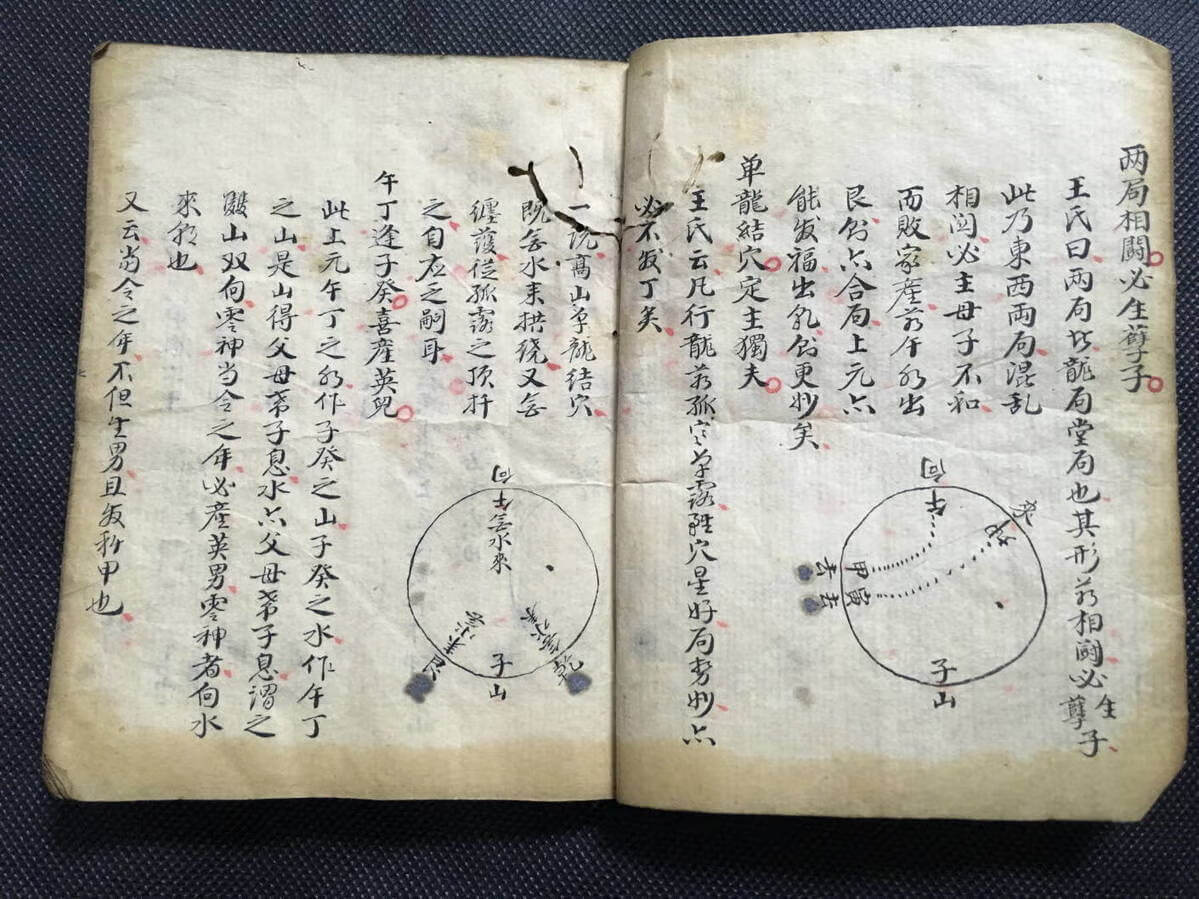 两局相鬪必生孽子
王氏曰两局皆龍局堂局也其形若相鬪必生孽子
此乃東西両局混乱
相鬪必主母子不和
而敗家産若午水出
艮亦合局上元亦
能发福出乳更妙矣
单龍結穴定主獨夫
王氏云凡行龍若孤寒单露雖穴星好局势妙亦
必不发丁矣
向
午
甲
寅
去
去
子
山
一说髙山单龍結穴
既無水来拱绕又無
纏護從孤露之顶扦
之自应乏嗣耳
午丁逢子癸喜産英兒
此上元午丁之水作子癸之山子癸之水作午丁
之山是山得父母帶子息水亦父母帶子息謂之
雙山双向零神当令之年必産英男零神者向水
來水也
又云当令之年不但生男且发科甲也
向
無水來
乾
子
山